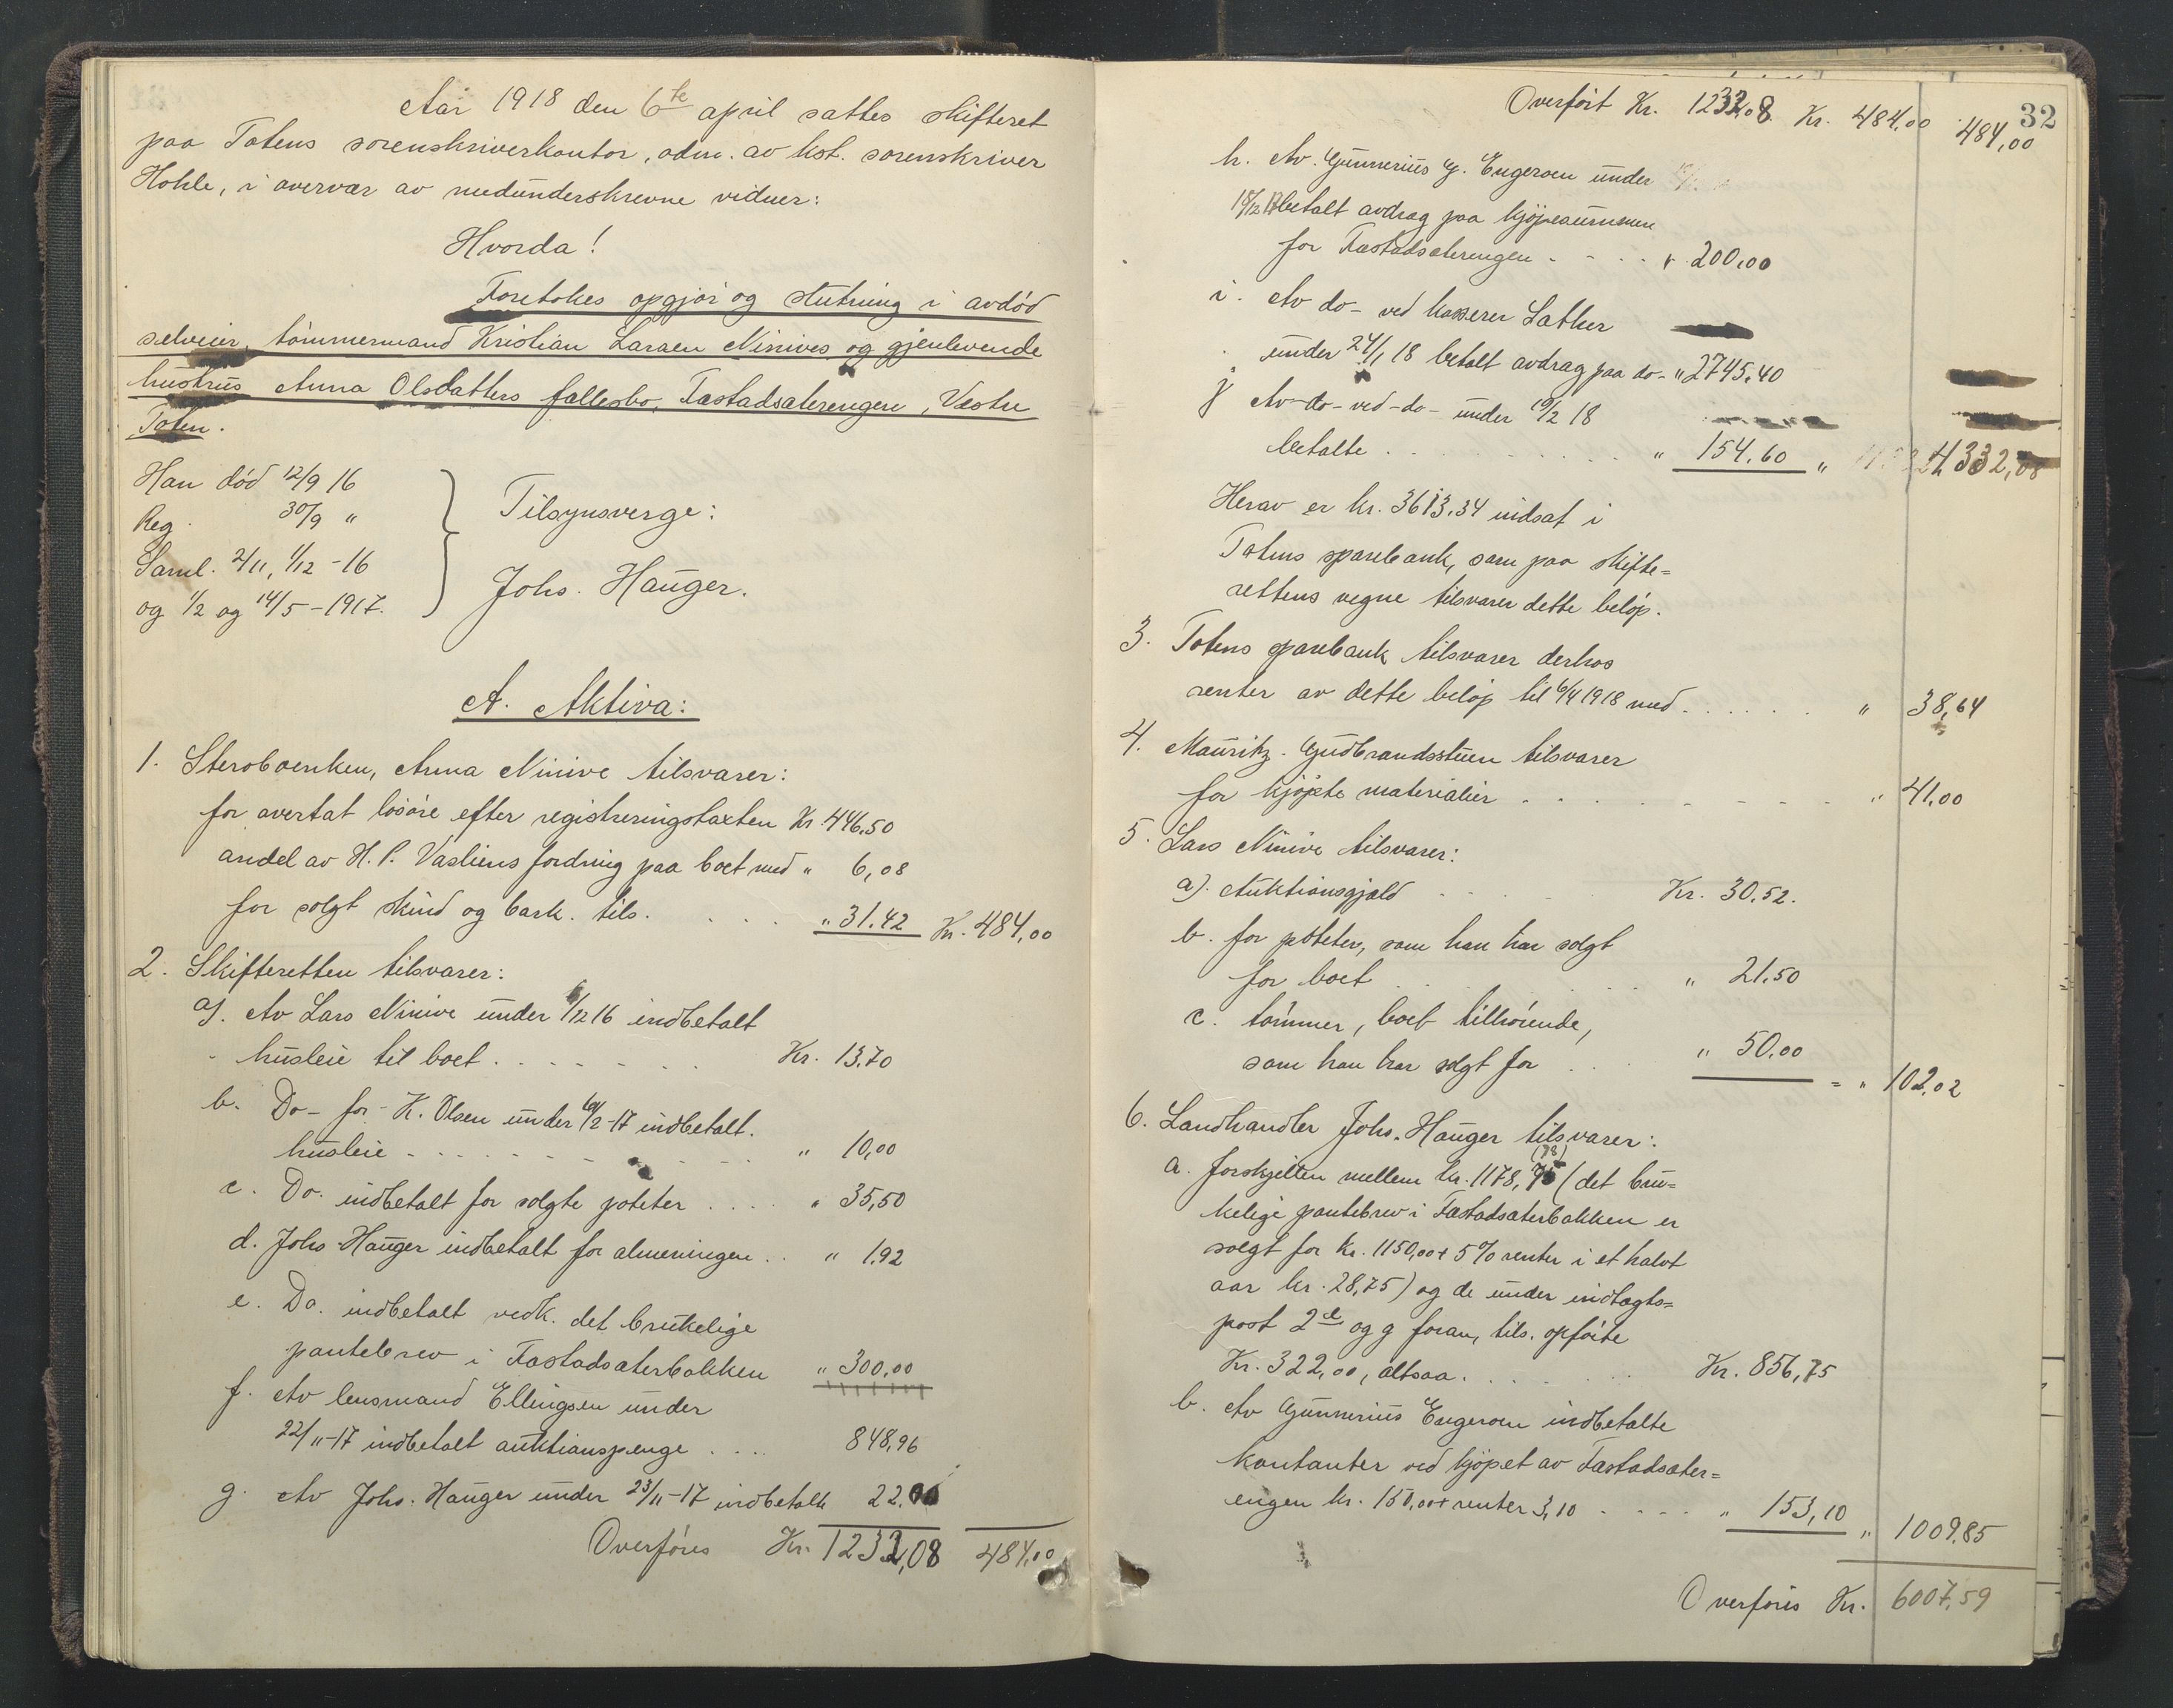 Aar 1918 den 6te april sattes skifteret
paa Totens sorenskriverkontor, adm. av kst. sorenskriver
Hohle, i overvær av medunderskrevne vidner:
Hvorda!
Foretokes opgjør og slutning i avdød
selveier, tømmermand Kristian Larsen Ninives og gjenlevende
hustrus Anna Olsdatters fællesbo, Fastadsæterengen, Vestre
Toten.
Han død 12/9 16
Reg. 30/9 "
Saml. 2/11, 1/12 - 16
og 1/2 og 14/5 - 1917.
Tilsynsverge:
Johs. Hauger.
A. Aktiva:
1. Stervboenken, Anna Ninive tilsvarer:
for overtat løsøre efter registreringstaxten Kr. 446,50
andel av H. P. Vasliens fordring paa boet med " 6,08
for solgt skind og bark. tils. . . . " 31.42 Kr. 484,00
2. Skifteretten tilsvarer:
a). Av Lars Ninive under 1/12 16 indbetalt
husleie til boet . . . . . . Kr. 13.70
b. Do - for K. Olsen under /2-17 indbetalt.
husleie . . . . . . . . " 10,00
c. Do. indbetalt for solgte poteter . . . . " 35,50
d. Johs. Hauger indbetalt for almeningen . . " 1,92
e. Do. indbetalt vedk. det brukelige
pantebrev i Fastadsæterbakken " 300,00
f. Av lensmand Ellingsen under
22/11-17 indbetalt auktionspenge . . . . 848,96
g. Av Johs. Hauger under 23/11-17 indbetalt 22.00
Overføres Kr. 1232,08 484.00
32
Overført Kr. 1232,08 Kr. 484,00 484,00
h. Av Gunnerius G. Engeroen under
18/12 17 betalt avdrag paa kjøpesummen
for Fastadsæterengen . . . . " 200,00
i. Av do - ved kasserer Sather
under 24/1 18 betalt avdrag paa do - " 2745,40
j Av - do - ved - do - under 19/2 18
betalte . . . . . . . . " 154.60 " 4332,08
Herav er kr. 3613.34 indsat i
Totens sparebank, som paa skifte=
rettens vegne tilsvarer dette beløp.
3. Totens sparebank tilsvarer derhos
renter av dette beløp til 6/4 1918 med . . . . . . " 38,64
4. Mauritz Gudbrandsstuen tilsvarer
for kjøpte materialier . . . . . . . . " 41,00
5. Lars Ninive tilsvarer:
a). Auktionsgjæld . . . . Kr. 30.52.
b. for poteter, som han har solgt
for boet . . . . . . " 21.50
c. tømmer, boet tilhørende,
som han har solgt for . . . " 50.00 = " 102,02
6. Landhandler Johs. Hauger tilsvarer:
a. forskjellen mellem kr. 1178,75 (det bru=
kelige pantebrev i Fastadsæterbakken er
solgt for kr. 1150,00 + 5% renter i et halvt
aar kr. 28,75) og de under indtægts=
post 2 e og g foran, tils. opførte
Kr. 322,00, altsaa . . . . . . Kr. 856,75
b. Av Gunnerius Engeroen indbetalte
kontanter ved kjøpet av Fastadsæter=
engen kr. 150,00 + renter 3,10 . . . . " 153,10 " 1009,85
Overføres Kr. 6007,59